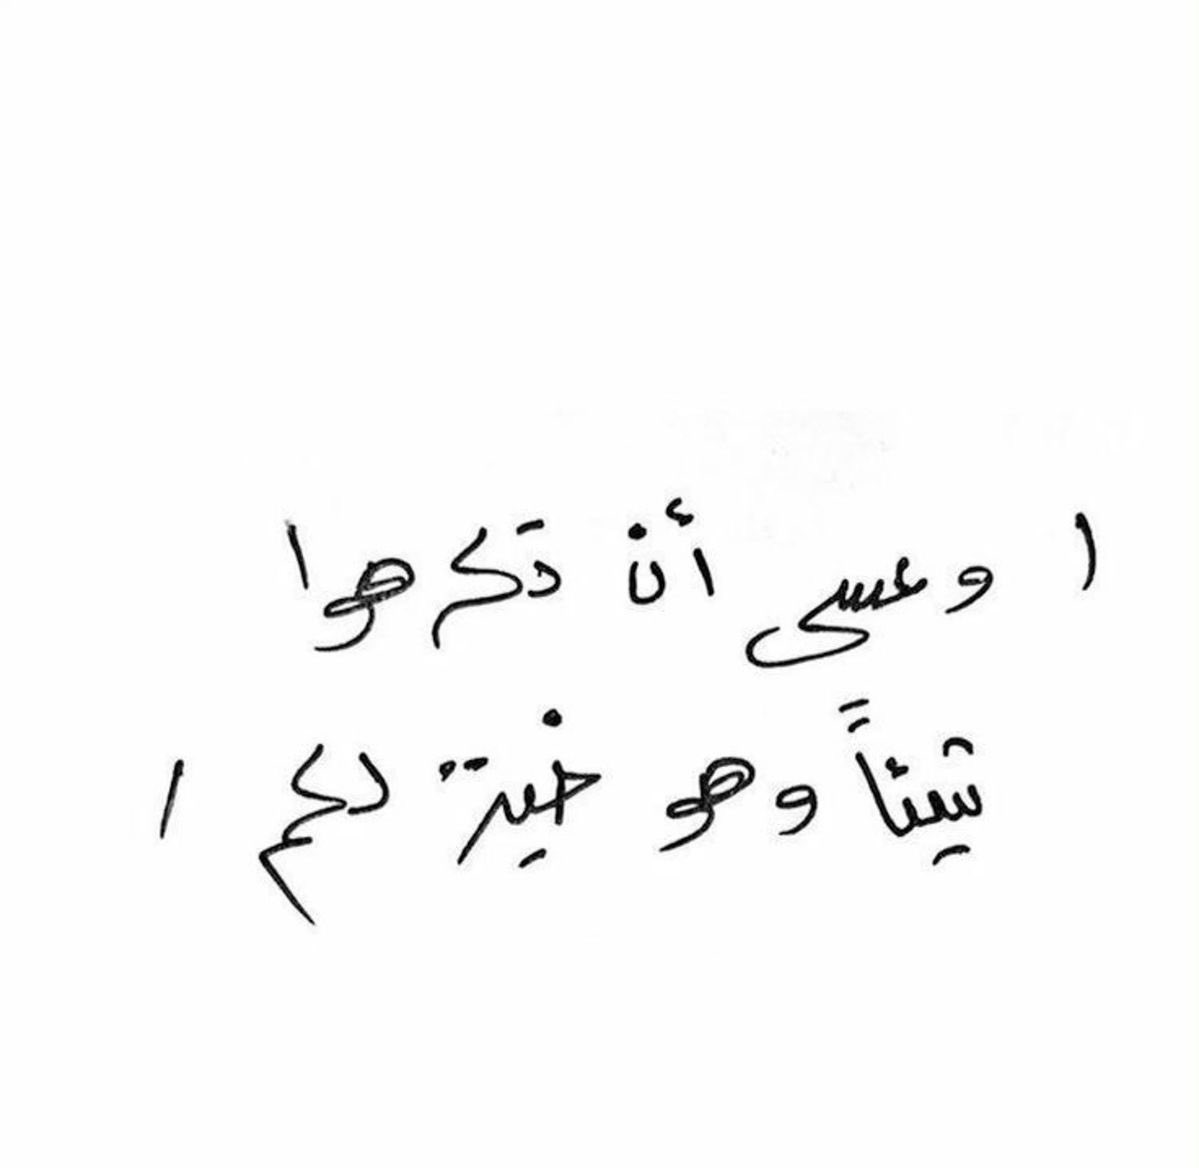 ( وعسى أن تكرهوا
شيئاً وهو خيرٌ لكم )